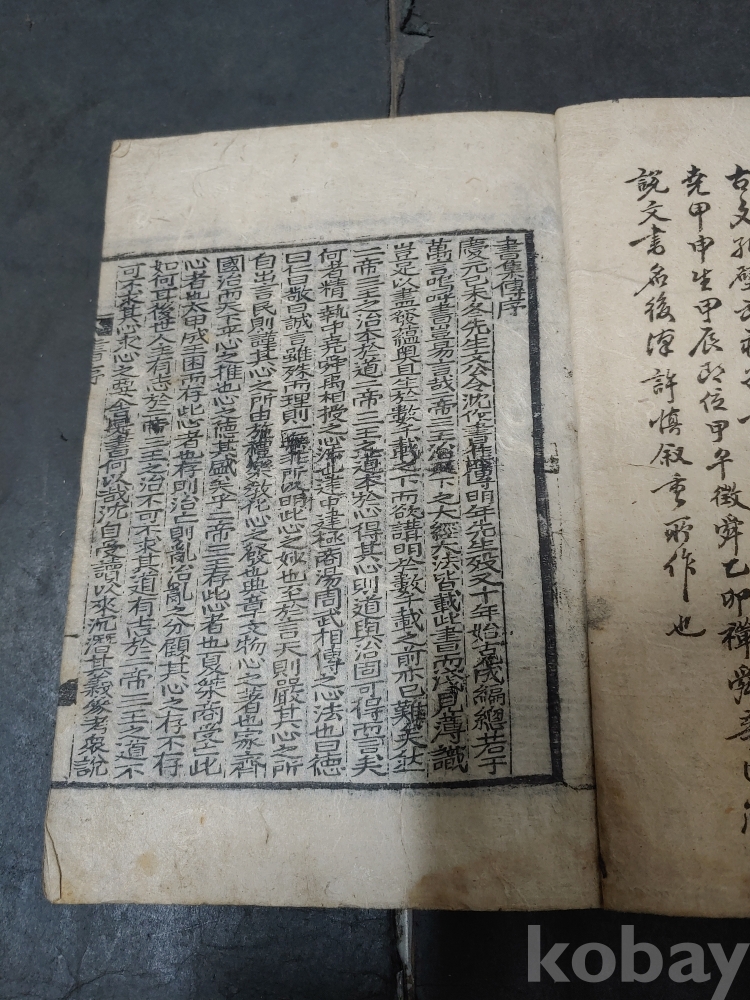 古文孔壁
堯甲申生甲辰即位甲午徵舜乙卯禪舜
說文書名後漢許慎叙重所作也
書集傳序
慶元己未冬先生文公令沈作書集傳明年先生歿又十年始克成編總若于
萬言嗚呼書豈易言哉二帝三王治天下之大經大法皆載此書而淺見薄識
豈足以盡發蘊奧且生於數千載之下而欲講明於數千載之前亦已難矣然
二帝三王之治本於道二帝三王之道本於心得其心則道與治固可得而言矣
何者精一執中堯舜禹相授之心法也建中建極商湯周武相傳之心法也曰德
曰仁曰敬曰誠言雖殊而理則一無非所以明此心之妙也至於言天則嚴其心之所
自出言民則謹其心之所由施禮樂敎化心之發也典章文物心之著也家齊
國治而天下平心之推也心之德其盛矣乎二帝三王存此心者也夏桀商受亡此
心者也太甲成王困而存此心者也存則治亡則亂治亂之分顧其心之存不存
如何耳後世人主有志於二帝三王之治不可不求其道有志於二帝三王之道不
可不求其心求心之要舍是書何以哉沈自受讀以來沉潛其義參考衆說
書序
kobay